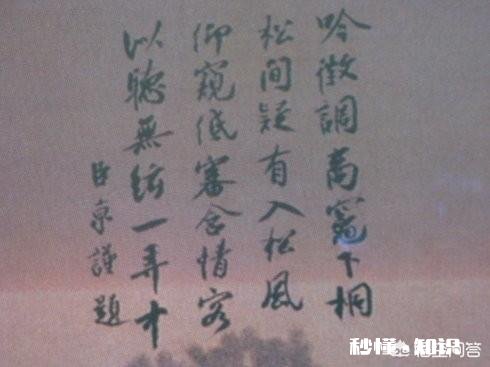 吟徵調商竈下桐
松間疑有入松風
仰窺低審含情客
以聽無絃一弄中
臣京謹題
秒懂·知识